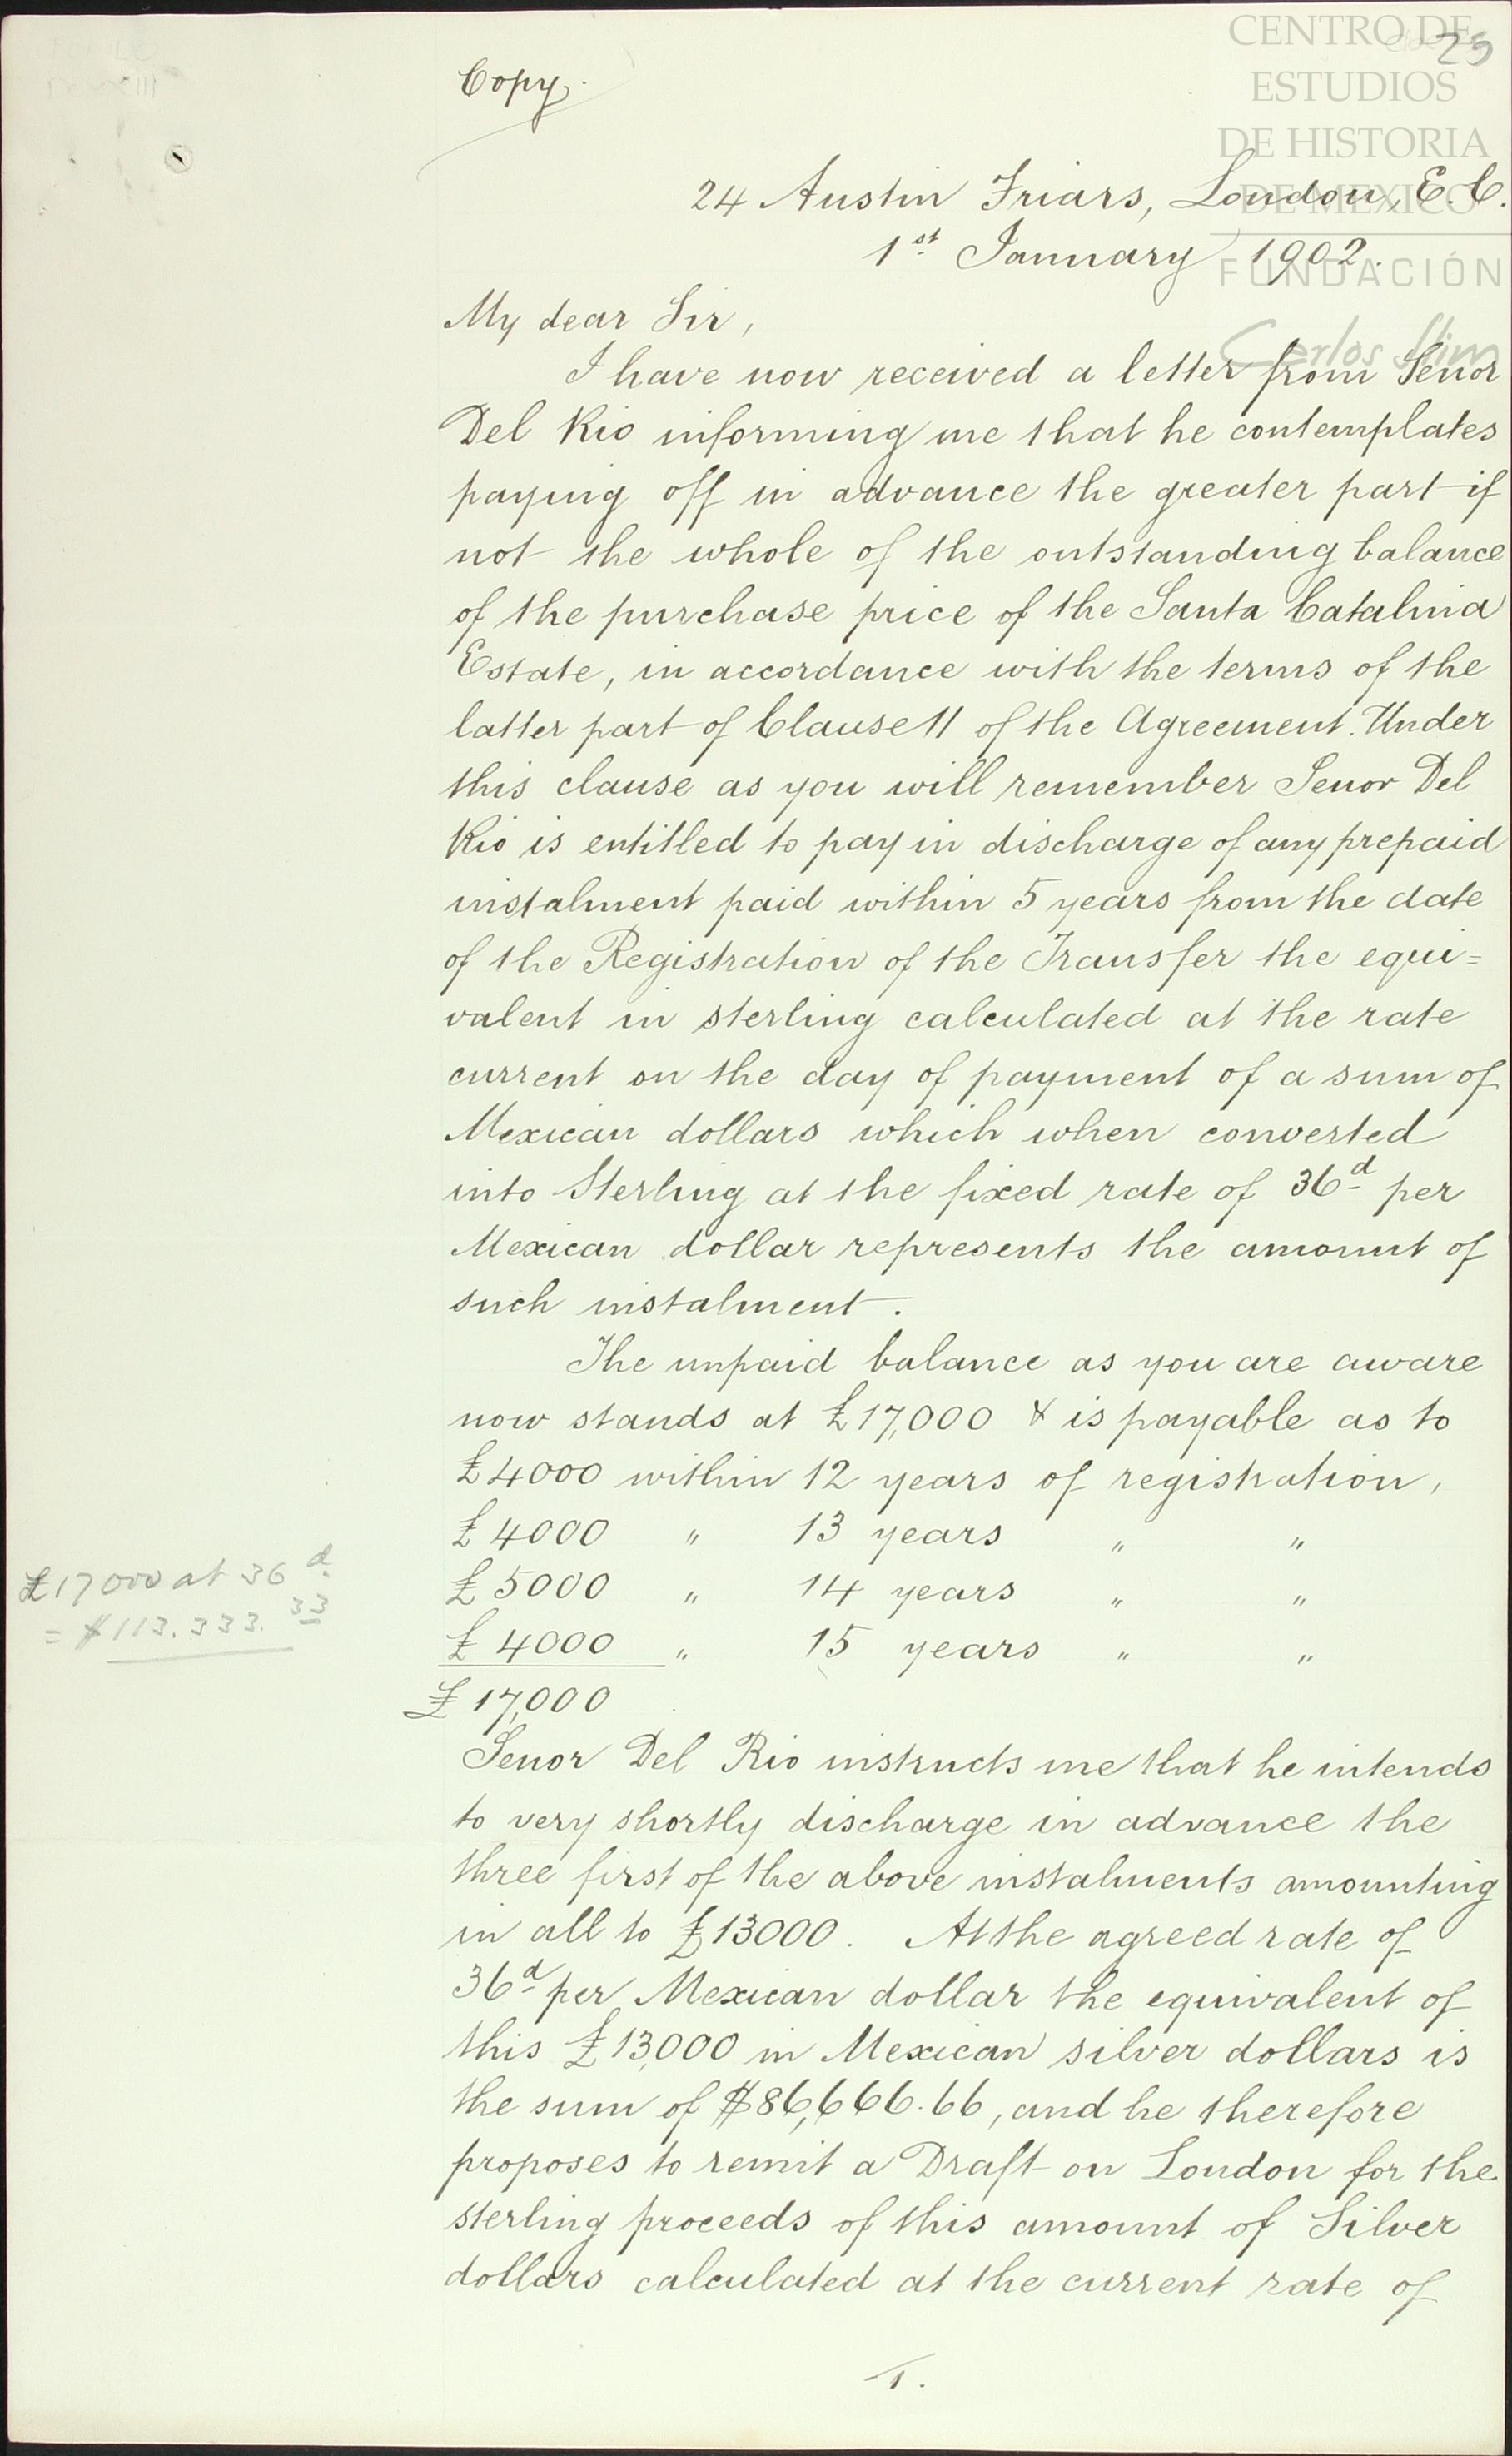 CENTRO DE
ESTUDIOS
DE HISTORIA
DE MEXICO
FUNDACIÓN
Carlos Slim
25
Copy.
24 Austin Friars, London, E.C.
1st. January 1902.
My dear Sir,
I have now received a letter from Senor
Del Rio informing me that he contemplates
paying off in advance the greater part if
not the whole of the outstanding balance
of the purchase price of the Santa Catalina
Estate, in accordance with the terms of the
latter part of Clause 11 of the Agreement. Under
this clause as you will remember Senor Del
Rio is entitled to pay in discharge of any prepaid
instalment paid within 5 years from the date
of the Registration of the Transfer the equi=
valent in sterling calculated at the rate
current on the day of payment of a sum of
Mexican dollars which when converted
into Sterling at the fixed rate of 36d per
Mexican dollar represents the amount of
such instalment.
The unpaid balance as you are aware
now stands at £17,000 & is payable as to
£4000 within 12 years of registration,
£4000 " 13 years " "
£5000 " 14 years " "
£17000 at 36d.
= $113.333.33
£4000 " 15 years " "
£17,000
Senor Del Rio instructs me that he intends
to very shortly discharge in advance the
three first of the above instalments amounting
in all to £13000. At the agreed rate of
36d per Mexican dollar the equivalent of
this £13,000 in Mexican silver dollars is
the sum of $86,666.66, and he therefore
proposes to remit a Draft on London for the
sterling proceeds of this amount of Silver
dollars calculated at the current rate of
1.